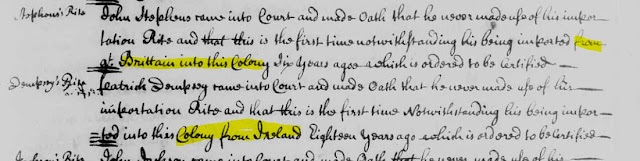 Stephens's Rite John Stephens came into Court and made Oath that he never made use of his impor=
tation Rite and that this is the first time notwithstanding his being imported from
gt. Brittain into this Colony Six Years agoe which is ordered to be Certified
Dempsy's Rite Patrick Dempsey came into Court and made Oath that he never made use of his
importation Rite and that this is the first time Notwithstanding his being impor=
ted into this Colony from Ireland Eighteen Years ago which is ordered to be Certified
Rite John came into Court and made Oath that he never made use of his